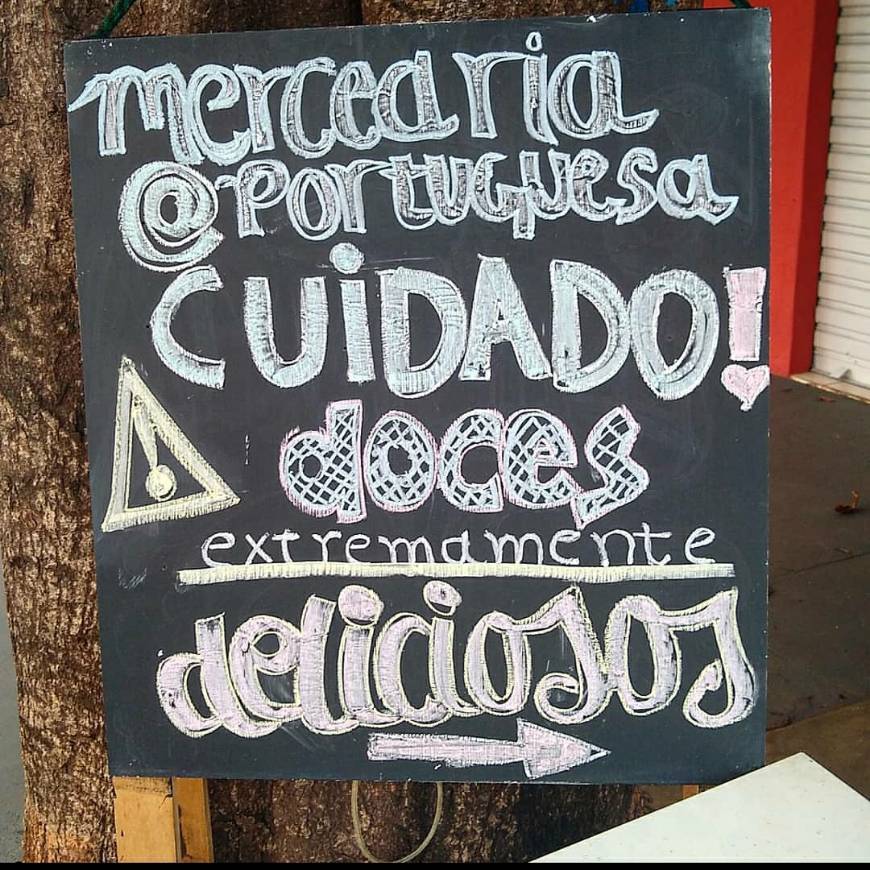 mercearia
@Portuguesa
CUiDADO!
doces
extremamente
deliciosos